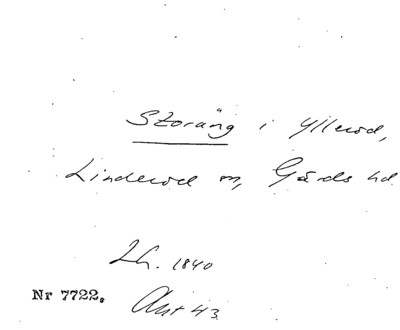 Storäng i Yllerod,
Linderod sn, Gärds hd.
Lh. 1840
Nr 7722. Akt 43.